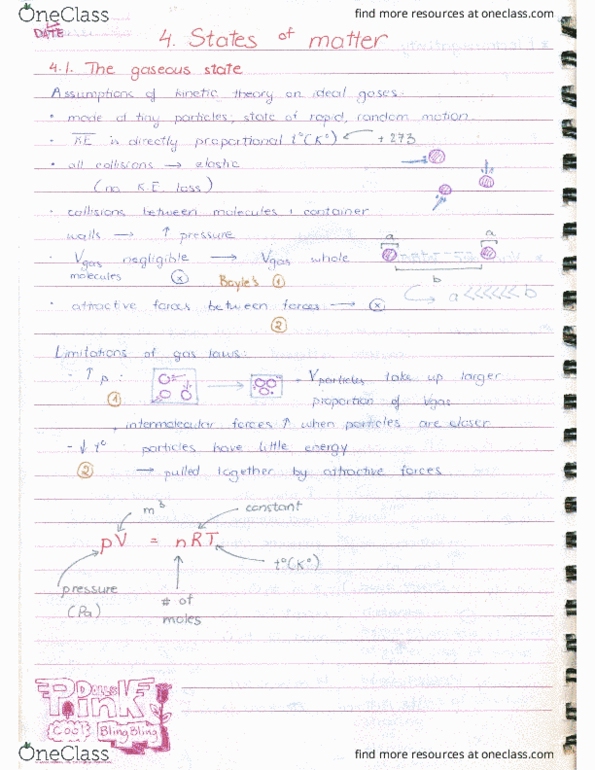 OneClass
find more resources at oneclass.com
DATE
4. States of matter
4.1. The gaseous state
Assumptions of kinetic theory on ideal gases.
• made of tiny particles, state of rapid, random motion.
• KE is directly proportional t°(K°) + 273
• all collisions → elastic
(no K.E. loss)
• collisions between molecules, container
walls → ↑ pressure
a a
• Vgas negligible → Vgas whole
molecules x Boyle's 1
b
a<<<<<<b
• attractive forces between forces → x
2
Limitations of gas laws:
- ↑ p : → - Vparticles take up larger
1 proportion of Vgas
, intermolecular forces ↑ when particles are closer
- ↓ t° particles have little energy
2 → pulled together by attractive forces
m³ constant
pV = nRT
t°(K°)
pressure
(Pa)
# of
moles
DOLLS
PinK
Cool BlingBling
OneClass
find more resources at oneclass.com